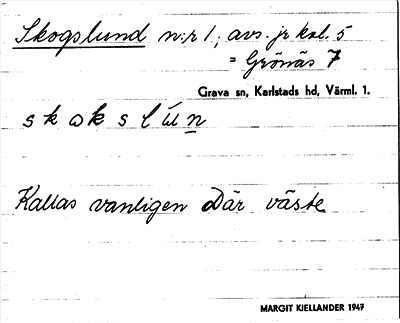 Skogslund n:r 1, avs. jr kal. 5
= Grönäs 7
Grava sn, Karlstads hd, Värml. 1.
s k ω k s l ú n
Kallas vanligen Där väste
MARGIT KIELLANDER 1947